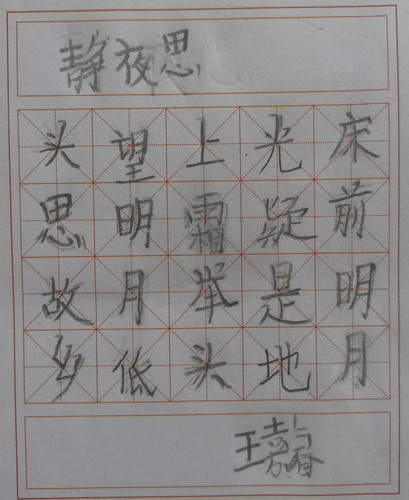 静夜思
床前明月
光疑是地
上霜举头
望明月低
头思故乡
王